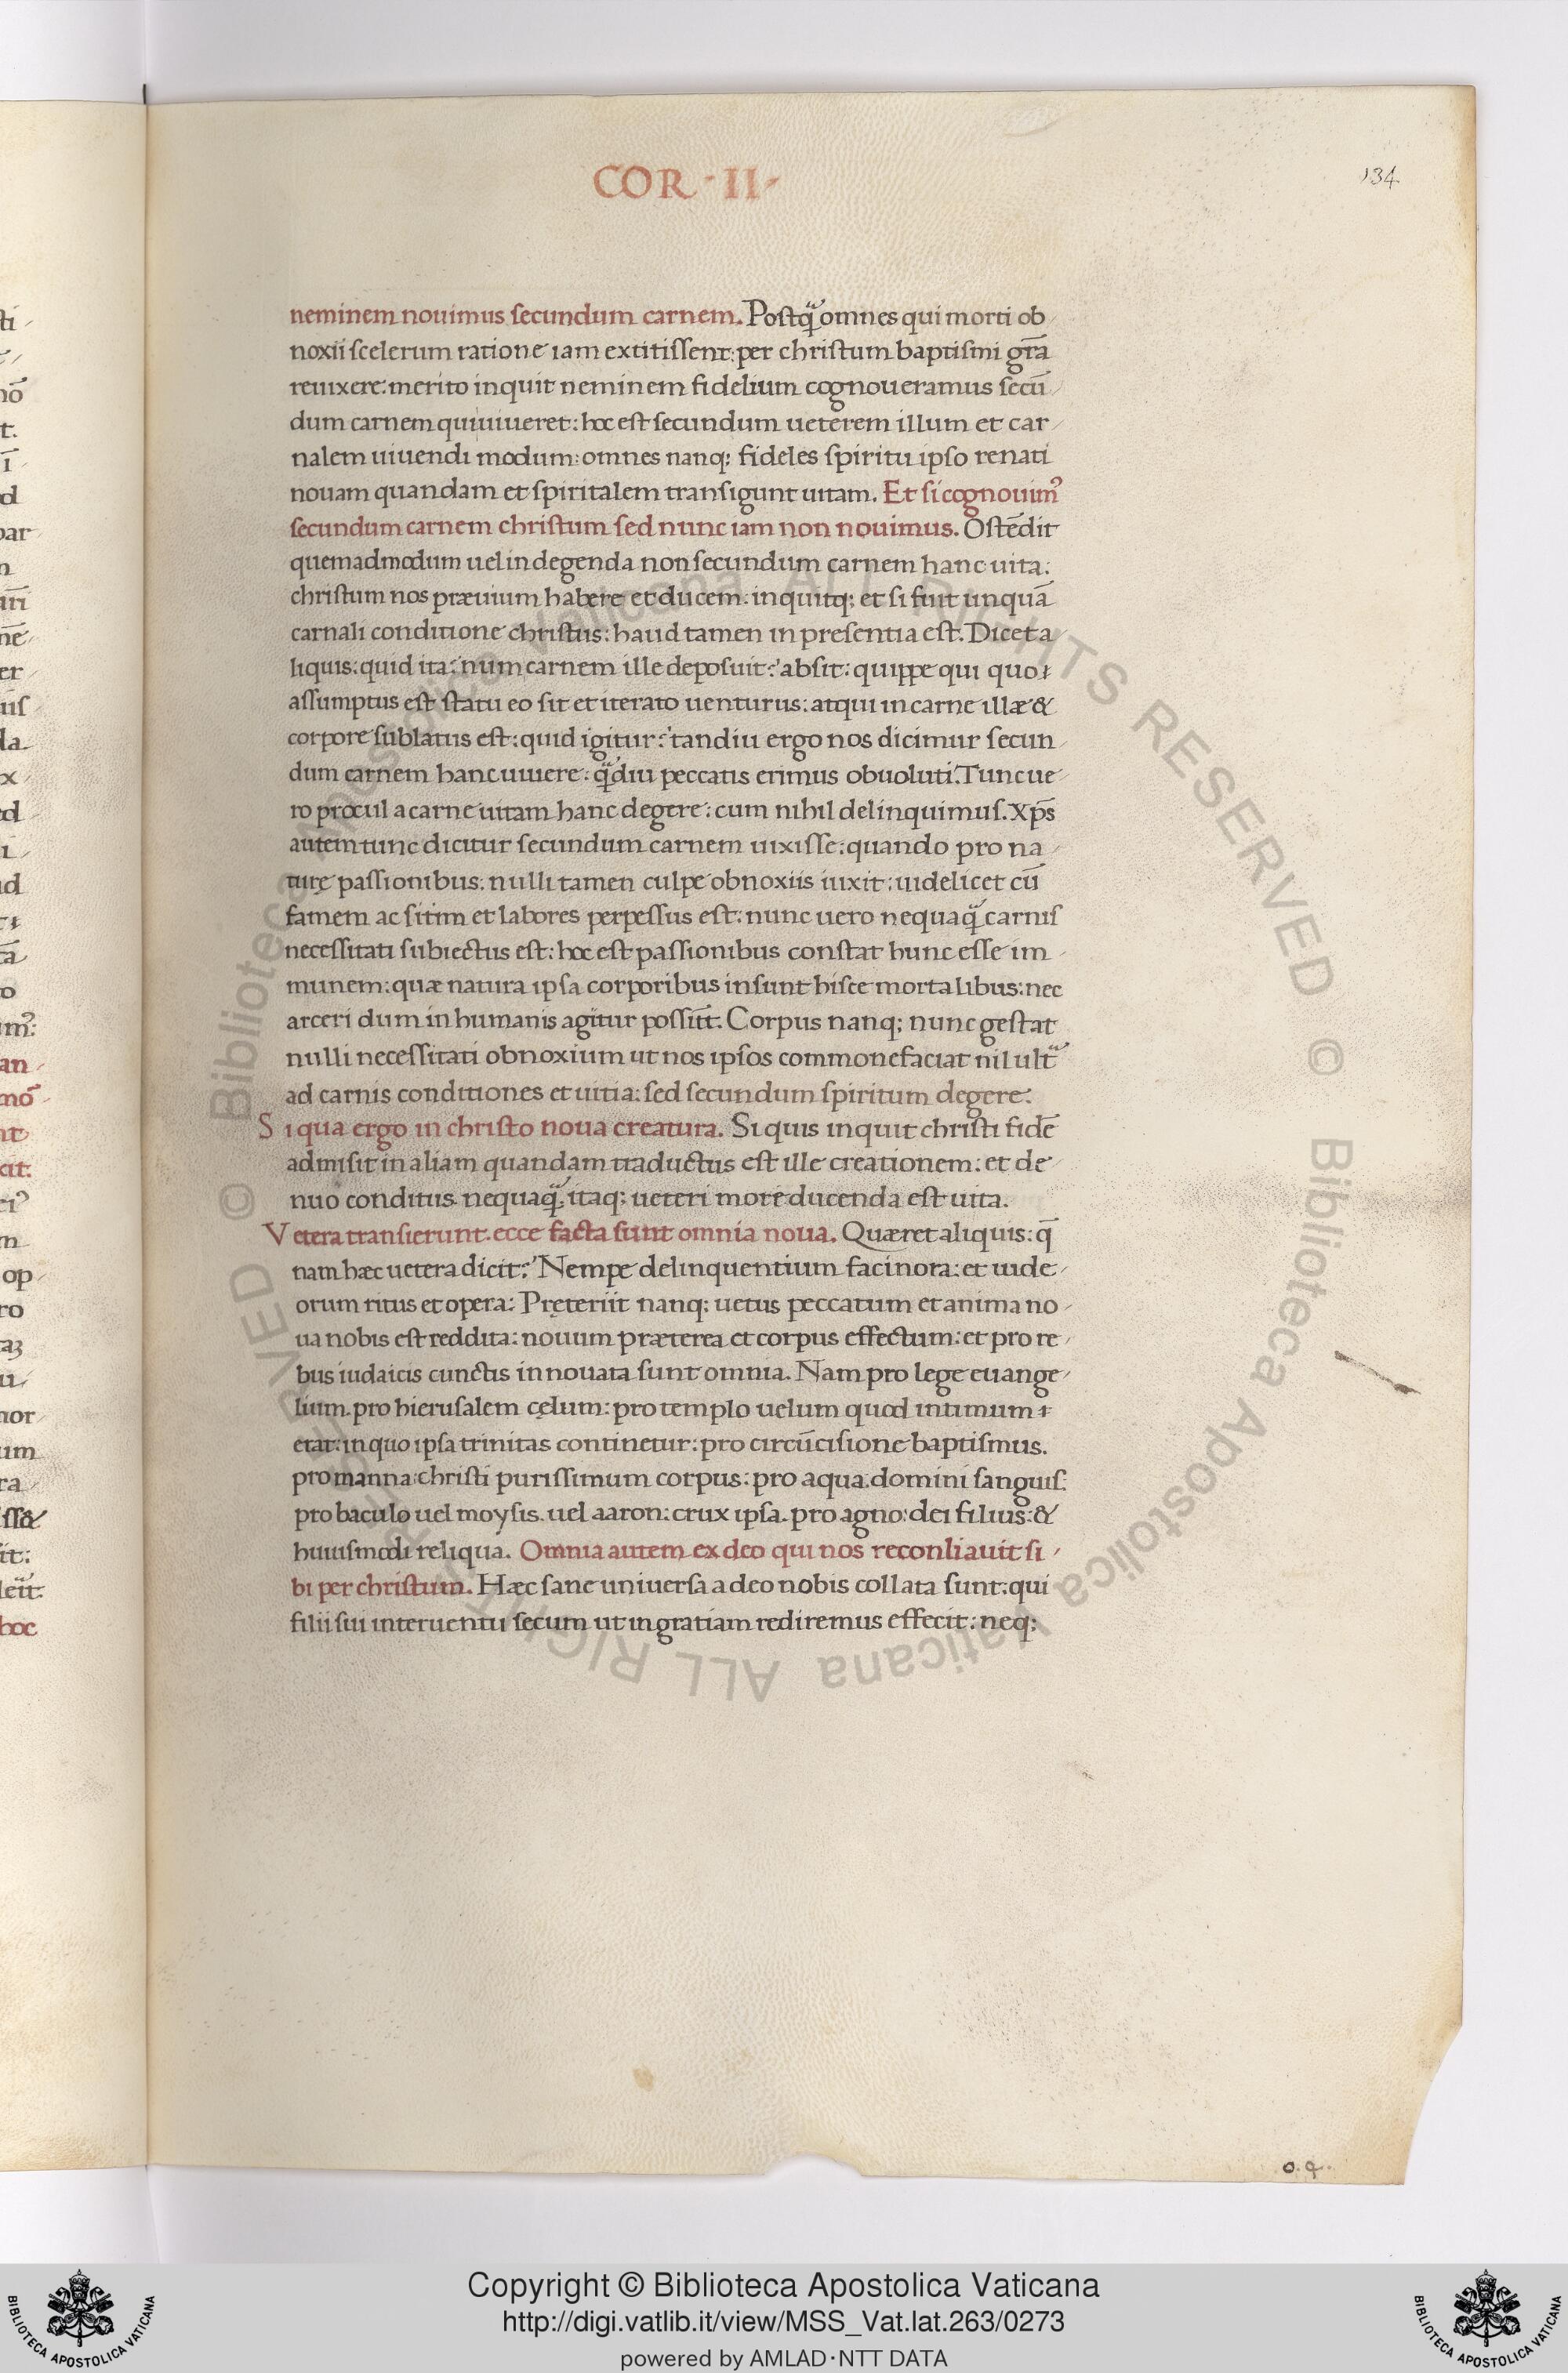 COR · II ·
134
neminem nouimus secundum carnem. Postq̃ omnes qui morti ob
noxii scelerum ratione iam extitissent: per christum baptismi gr̃a
reuixere: merito inquit neminem fidelium cognoueramus secũ
dum carnem qui uiueret: hoc est secundum ueterem illum et car
nalem uiuendi modum: omnes nanq; fideles spiritu ipso renati
nouam quandam et spiritalem transigunt uitam. Et si cognouim9
secundum carnem christum sed nunc iam non nouimus. Ostẽdit
quemadmodum uel in degenda non secundum carnem hanc uita:
christum nos præuium habere et ducem: inquitq; et si fuit unquã
carnali conditione christus: haud tamen in presentia est. Dicet a
liquis: quid ita? num carnem ille deposuit? absit: quippe qui quo
assumptus est statu eo sit et iterato uenturus: atqui in carne illæ &
corpore sublatus est: quid igitur? tandiu ergo nos dicimur secun
dum carnem hanc uiuere: q̃diu peccatis erimus obuoluti. Tunc ue
ro procul a carne uitam hanc degere: cum nihil delinquimus. Xp̃s
autem tunc dicitur secundum carnem uixisse: quando pro na
turę passionibus: nulli tamen culpe obnoxiis uixit: uidelicet cũ
famem ac sitim et labores perpessus est: nunc uero nequaq̃ carnis
necessitati subiectus est: hoc est passionibus constat hunc esse im
munem: quæ natura ipsa corporibus insunt hisce mortalibus: nec
arceri dum in humanis agitur possĩt. Corpus nanq; nunc gestat
nulli necessitati obnoxium ut nos ipsos commonefaciat nil ult̃
ad carnis conditiones et uitia: sed secundum spiritum degere:
Si qua ergo in christo noua creatura. Si quis inquit christi fidẽ
admisit in aliam quandam traductus est ille creationem: et de
nuo conditus. nequaq̃ itaq; ueteri more ducenda est uita.
Vetera transierunt. ecce facta sunt omnia noua. Quæret aliquis: q̃
nam hæc uetera dicit? Nempe delinquentium facinora: et iude
orum ritus et opera: Pręteriit nanq; uetus peccatum et anima no
ua nobis est reddita: nouum præterea et corpus effectum: et pro re
bus iudaicis cunctis innouata sunt omnia. Nam pro lege euange
lium. pro hierusalem cęlum: pro templo uelum quod intimum
etat: in quo ipsa trinitas continetur: pro circũcisione baptismus.
pro manna: christi purissimum corpus: pro aqua. domini sanguis:
pro baculo uel moysis. uel aaron: crux ipsa. pro agno: dei filius: &
huiusmodi reliqua. Omnia autem ex deo qui nos reconliauit si
bi per christum. Hæc sane uniuersa a deo nobis collata sunt: qui
filii sui interuentu secum ut in gratiam rediremus effecit: neq;
o. q.
© Biblioteca Apostolica Vaticana ALL RIGHTS RESERVED © Biblioteca Apostolica Vaticana ALL RIGHTS RESERVED
Copyright © Biblioteca Apostolica Vaticana
http://digi.vatlib.it/view/MSS_Vat.lat.263/0273
powered by AMLAD·NTT DATA
BIBLIOTECA APOSTOLICA VATICANA
BIBLIOTECA APOSTOLICA VATICANA